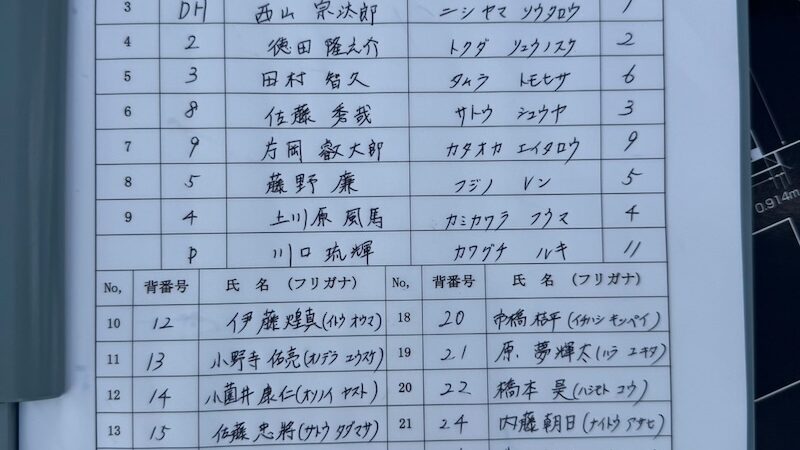 3 DH 西山 宗汰郎 ニシヤマ ソウタロウ 1
4 2 徳田 隆之介 トクダ リュウノスケ 2
5 3 田村 智久 タムラ トモヒサ 6
6 8 佐藤 秀哉 サトウ シュウヤ 3
7 9 片岡 叡大郎 カタオカ エイタロウ 9
8 5 藤野 廉 フジノ レン 5
9 4 上川原 風馬 カミカワラ フウマ 4
P 川口 琉輝 カワグチ ルキ 11
No, 背番号 氏 名 (フリガナ) No, 背番号 氏 名 (フリガナ)
10 12 伊藤煌真(イトウ オウマ) 18 20 市橋桔平(イチハシ キッペイ)
11 13 小野寺佑亮(オノデラ ユウスケ) 19 21 原 夢輝太(ハラ ユキタ)
12 14 小薗井康仁(オソノイ ヤスト) 20 22 橋本昊(ハシモト コウ)
13 15 佐藤忠将(サトウ タダマサ) 21 24 内藤朝日(ナイトウ アサヒ)
0.914m